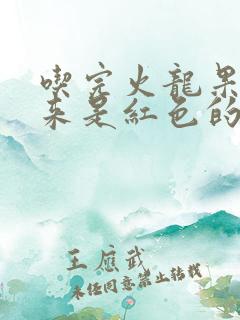 喫完火龍果
來是紅色的
王應武
未經同意禁止轉載